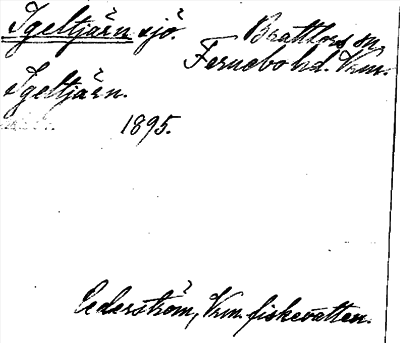 Igeltjärn sjö Brattfors sn
Fernebo hd. Vrm.
Igeltjärn.
1895.
Cederström, Vrm. fiskevatten.